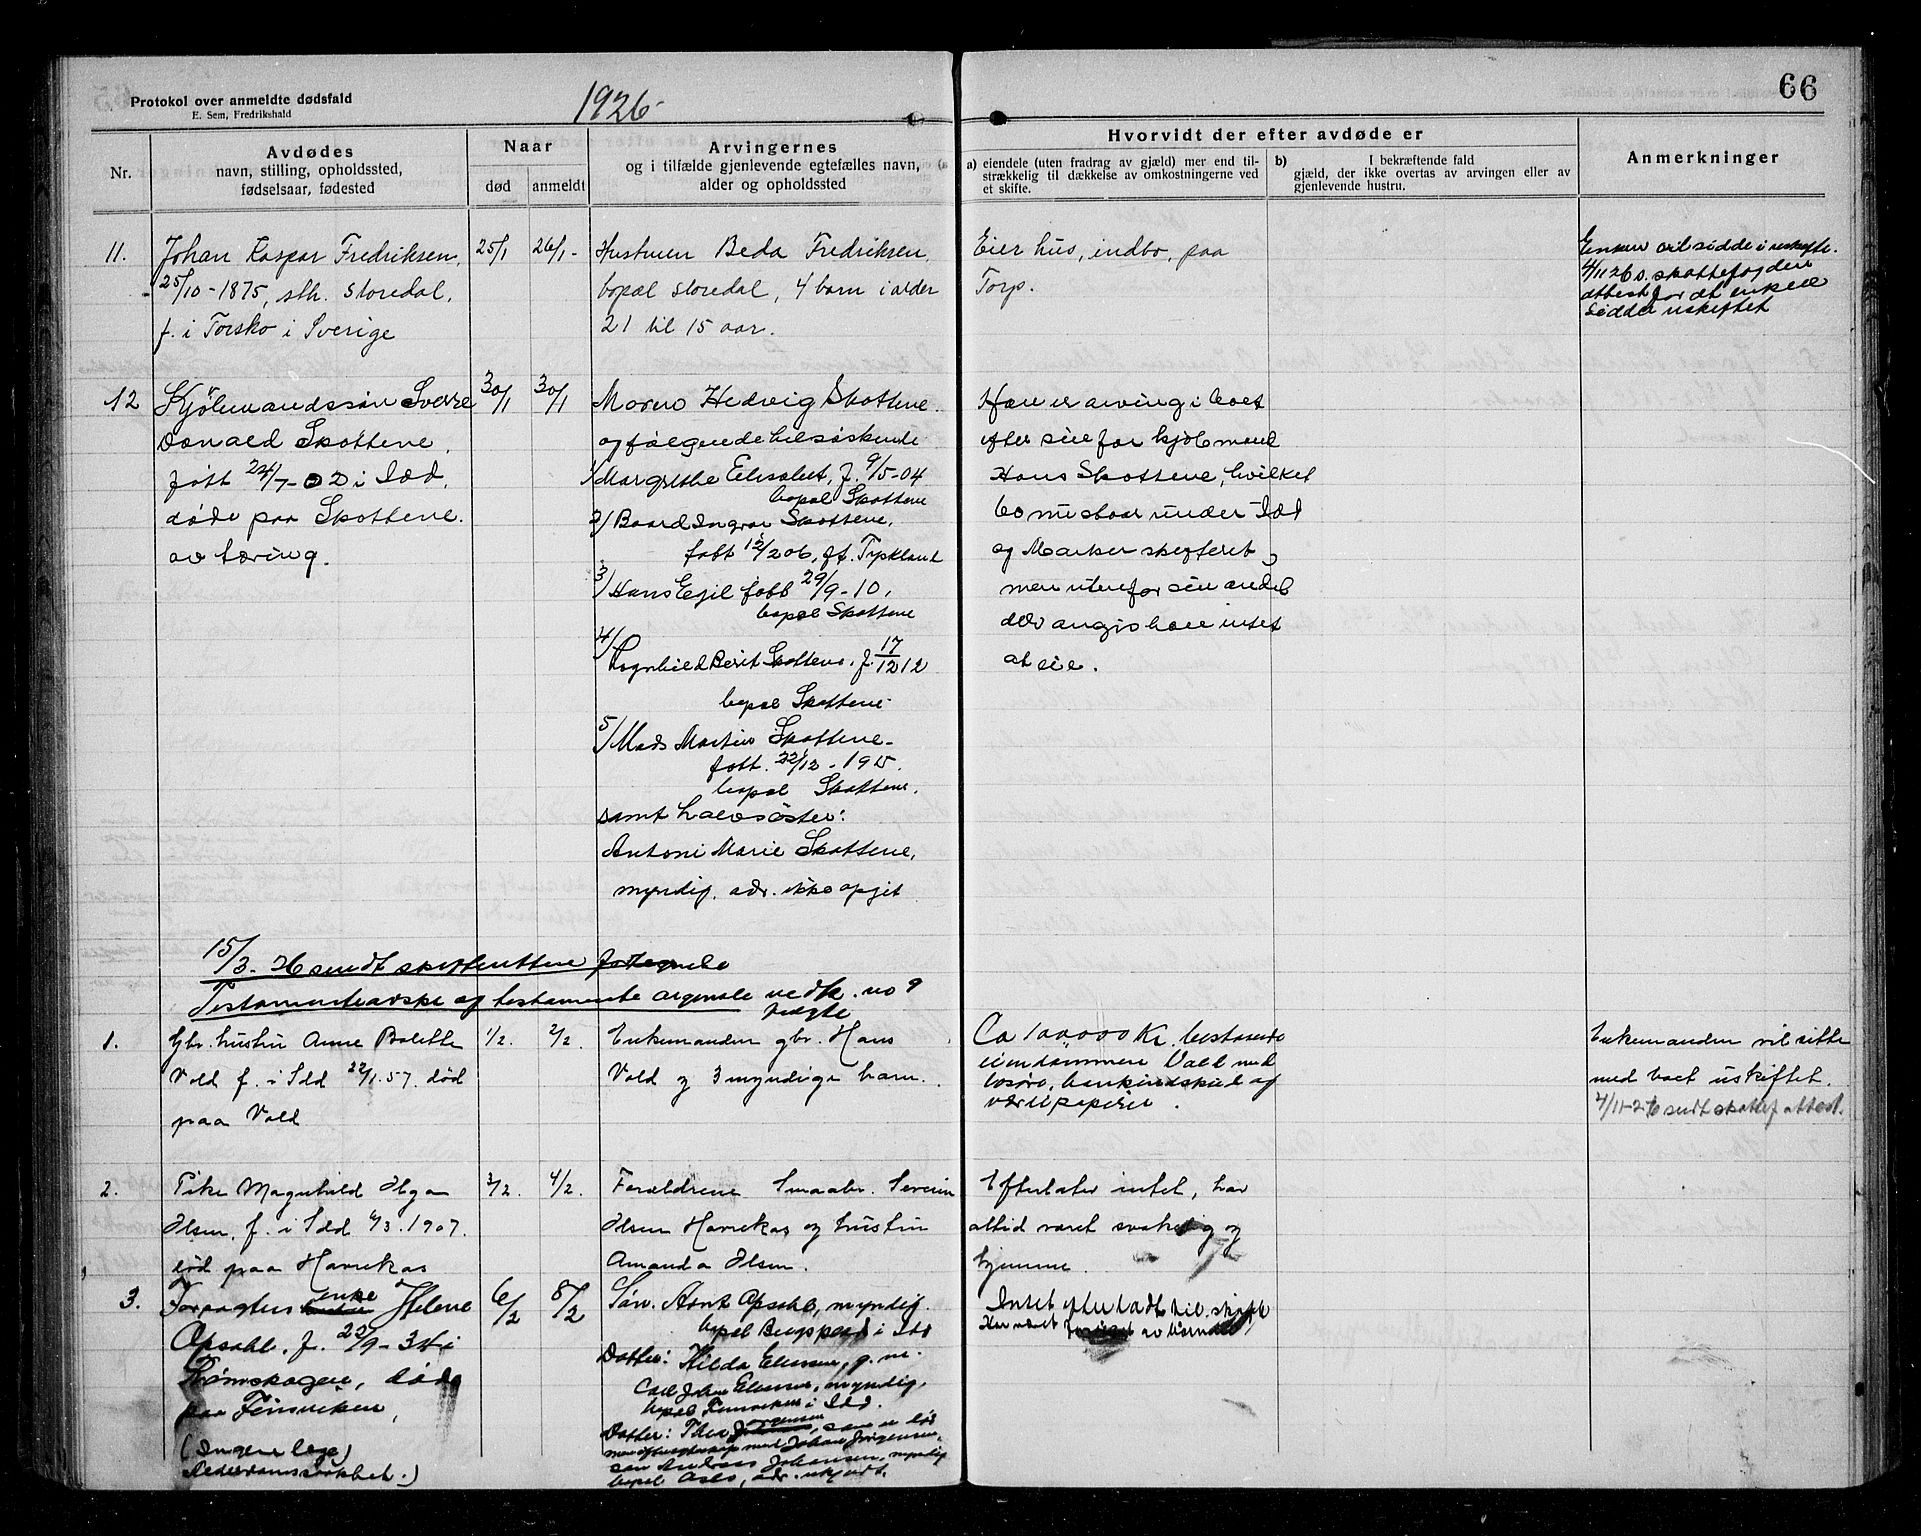 Protokol over anmeldte dødsfald
E. Sem, Fredrikshald
1926
66
Nr.
Avdødes
navn, stilling, opholdssted,
fødselsaar, fødested
Naar
død
anmeldt
Arvingernes
og i tilfælde gjenlevende egtefælles navn,
alder og opholdssted
Hvorvidt der efter avdøde er
a) eiendele (uten fradrag av gjæld) mer end til-
strækkelig til dækkelse av omkostningerne ved
et skifte.
b) I bekræftende fald
gjæld, der ikke overtas av arvingen eller av
gjenlevende hustru.
Anmerkninger
11.
Johan Kaspar Fredriksen,
25/10-1875, sth. Storedal,
f. i Torsko i Sverige
25/1
26/1-
Hustruen Beda Fredriksen,
bopæl Storedal, 4 barn i alder
21 til 15 aar.
Eier hus, indbo, paa
Torp.
Enken vil sidde i uskifte.
4/11 26 s. skattefogden
attest for at enken
sidder uskiftet
12
Kjøbmandssøn Sverre
Donald Skottene,
født 24/7-02 i Idd,
døde paa Skottene.
av tæring.
30/1
30/1
Moren Hedvig Skottene.
og følgende helsøskende
1/ Margrethe Elisabet, f. 9/5-04
bopæl Skottene
2/ Baard Ingvar Skottene,
født 12/2 06, Tyskland
3/ Hans Egil født 29/9-10,
bopæl Skottene
4/ Ragnhild Berit Skottene, f. 17/12 12
bopæl Skottene
5/ Mads Martin Skottene
født 22/12-1915.
bopæl Skottene.
samt halvsøster:
Antoni Marie Skottene,
myndig, adr. ikke opgit
Han er arving i boet
efter sin far kjøbmand
Hans Skottene, hvilket
bo nu staar under Idd
og Marker skifteret,
men utenfor sin andel
der angis han intet
at eie.
15/3-26 sendt skifteretten
Testamente vedk. no 9
1.
Gbr. hustru Anne Bolette
Vold f. i Idd 22/1.57. død
paa Vold
1/2.
2/2.
Enkemanden gbr. Hans
Vold og 3 myndige barn.
Ca 100,000 Kr. bestaaende
i eiendommen Vold med
løsøre, bankindskud og
værdipapirer.
Enkemanden vil sitte
med boet uskiftet.
4/11-26 sendt skattef attest.
2.
Pike Magnhild Olga
Olsen, f. i Idd 6/3.1907.
død paa Havrekas
3/2.
4/2.
Forældrene Smaabr. Severin
Olsen Havrekas og hustru
Amanda Olsen.
Efterlater intet, har
altid været svakelig og
hjemme.
3.
Forpagter enke Helene
Opsahl, f. 22/9-34 i
Rømskogen, døde
paa Finsviken,
(Ingen læge)
Alderdomssvakhet.)
6/2
8/2
Søn. Arnt Opsahl, myndig.
bopæl i Idd
Datter: Hilda Elensen, g. m.
Carl Johan Elensen, myndig,
bopæl i Idd.
Datter: Thea Jørgensen, som er død
men efterlatt Johan Jørgensen,
søn Andreas Johansen, myndig
bopæl Oslo, adr. ukjendt.
Intet efterladt til skifte
Har været forsørget av børnene